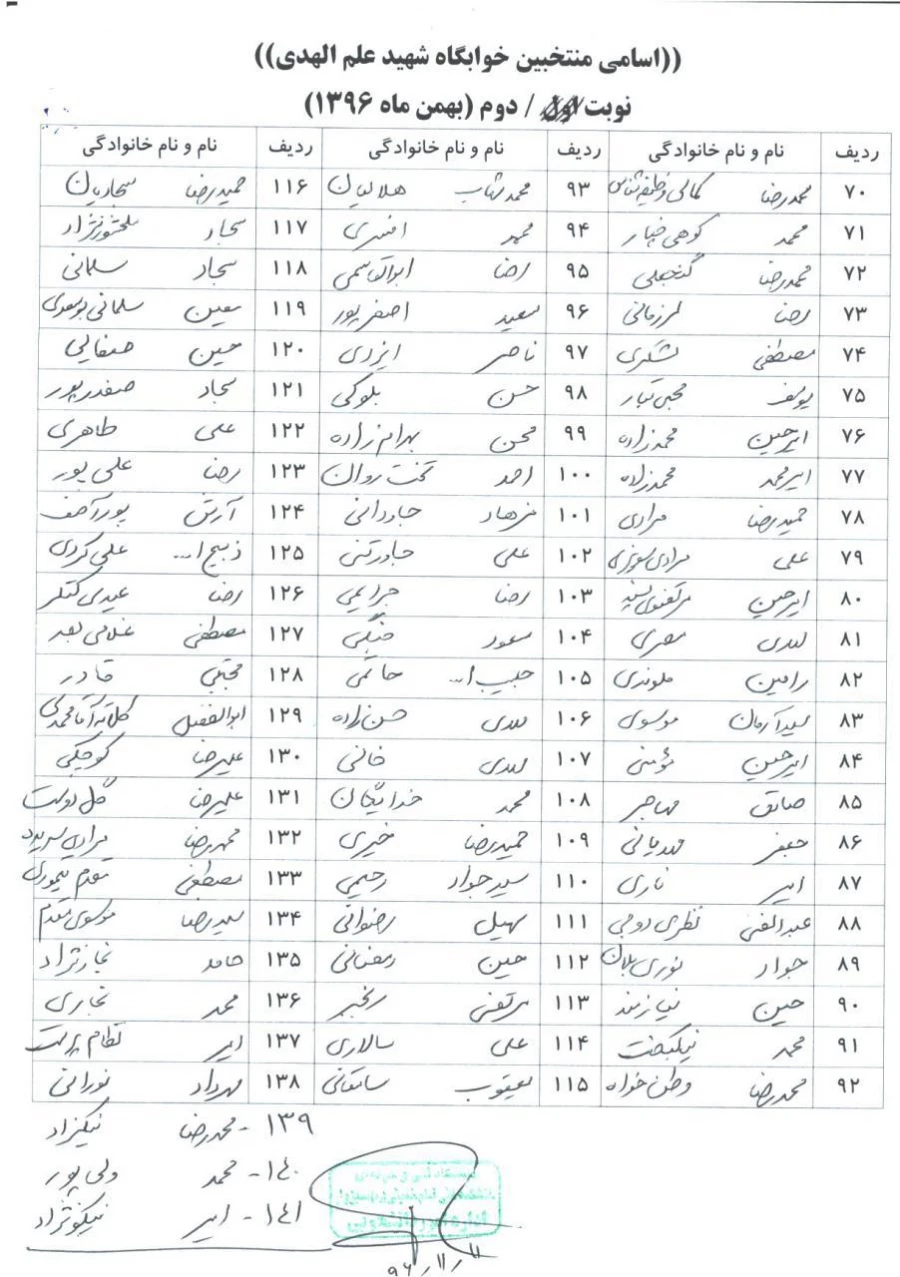 ((اسامی منتخبین خوابگاه شهید علم الهدی))
نوبت اول / دوم (بهمن ماه ۱۳۹۶)
ردیف نام و نام خانوادگی ردیف نام و نام خانوادگی ردیف نام و نام خانوادگی
۷۰ محمدرضا کمالی وظیفه شناس ۹۳ محمد شهاب هلالیان ۱۱۶ حمیدرضا سجادیان
۷۱ محمد کوهی خبار ۹۴ محمد افسری ۱۱۷ سجاد سلحشورنژاد
۷۲ محمدرضا گنجعلی ۹۵ رضا ابوالقاسمی ۱۱۸ سجاد سلمانی
۷۳ رضا لرزمانی ۹۶ سعید اصغرپور ۱۱۹ معین سلمانی بوسعدی
۷۴ مصطفی لشگری ۹۷ ناصر ایزدی ۱۲۰ حسین صفایی
۷۵ یوسف محبی تبار ۹۸ حسن بلوکی ۱۲۱ سجاد صفدرپور
۷۶ امیرحسین محمدزاده ۹۹ محسن بهرام زاده ۱۲۲ علی طاهری
۷۷ امیرمحمد محمدزاده ۱۰۰ احمد تخت روان ۱۲۳ رضا علی پور
۷۸ حمیدرضا مرادی ۱۰۱ فرهاد جاودانی ۱۲۴ آرش پورآصف
۷۹ علی مرادی ۱۰۲ علی جاورتنی ۱۲۵ ذبیح ا... علی کردی
۸۰ امیرحسین مرتضوی پسند ۱۰۳ رضا جرایمی ۱۲۶ رضا عیدی کتکر
۸۱ مهدی مصری ۱۰۴ مسعود جنگلی ۱۲۷ مصطفی غلامی
۸۲ رامین ملوندی ۱۰۵ حبیب ا... حاتمی ۱۲۸ مجتبی قادر
۸۳ سیدآرمان موسوی ۱۰۶ مهدی حسن زاده ۱۲۹ ابوالفضل کلاته آقامحمدی
۸۴ امیرحسین مؤمنی ۱۰۷ مهدی خانی ۱۳۰ علیرضا کوچکی
۸۵ صادق مهاجر ۱۰۸ محمد خدایگان ۱۳۱ علیرضا گل دوست
۸۶ جعفر مهربانی ۱۰۹ حمیدرضا خیری ۱۳۲ محمدرضا مرادی
۸۷ امیر ناری ۱۱۰ سیدجواد رحیمی ۱۳۳ مصطفی مقدم تیموری
۸۸ عبدالغنی نظری دومی ۱۱۱ سهیل رضوانی ۱۳۴ سیدرضا موسوی مقدم
۸۹ جواد نوری ۱۱۲ حسین رمضانی ۱۳۵ حامد نجارنژاد
۹۰ حسین نیازمند ۱۱۳ مرتضی رنجبر ۱۳۶ محمد نجاری
۹۱ محمد نیکبخت ۱۱۴ علی سالاری ۱۳۷ امیر نظام پرست
۹۲ محمدرضا وطن خواه ۱۱۵ یعقوب سامقانی ۱۳۸ مهرداد نورانی
۱۳۹- محمدرضا نیکزاد
۱۴۰- محمد ولی پور
۱۴۱- امیر نیکونژاد
۹۶/۱۱/۱۱